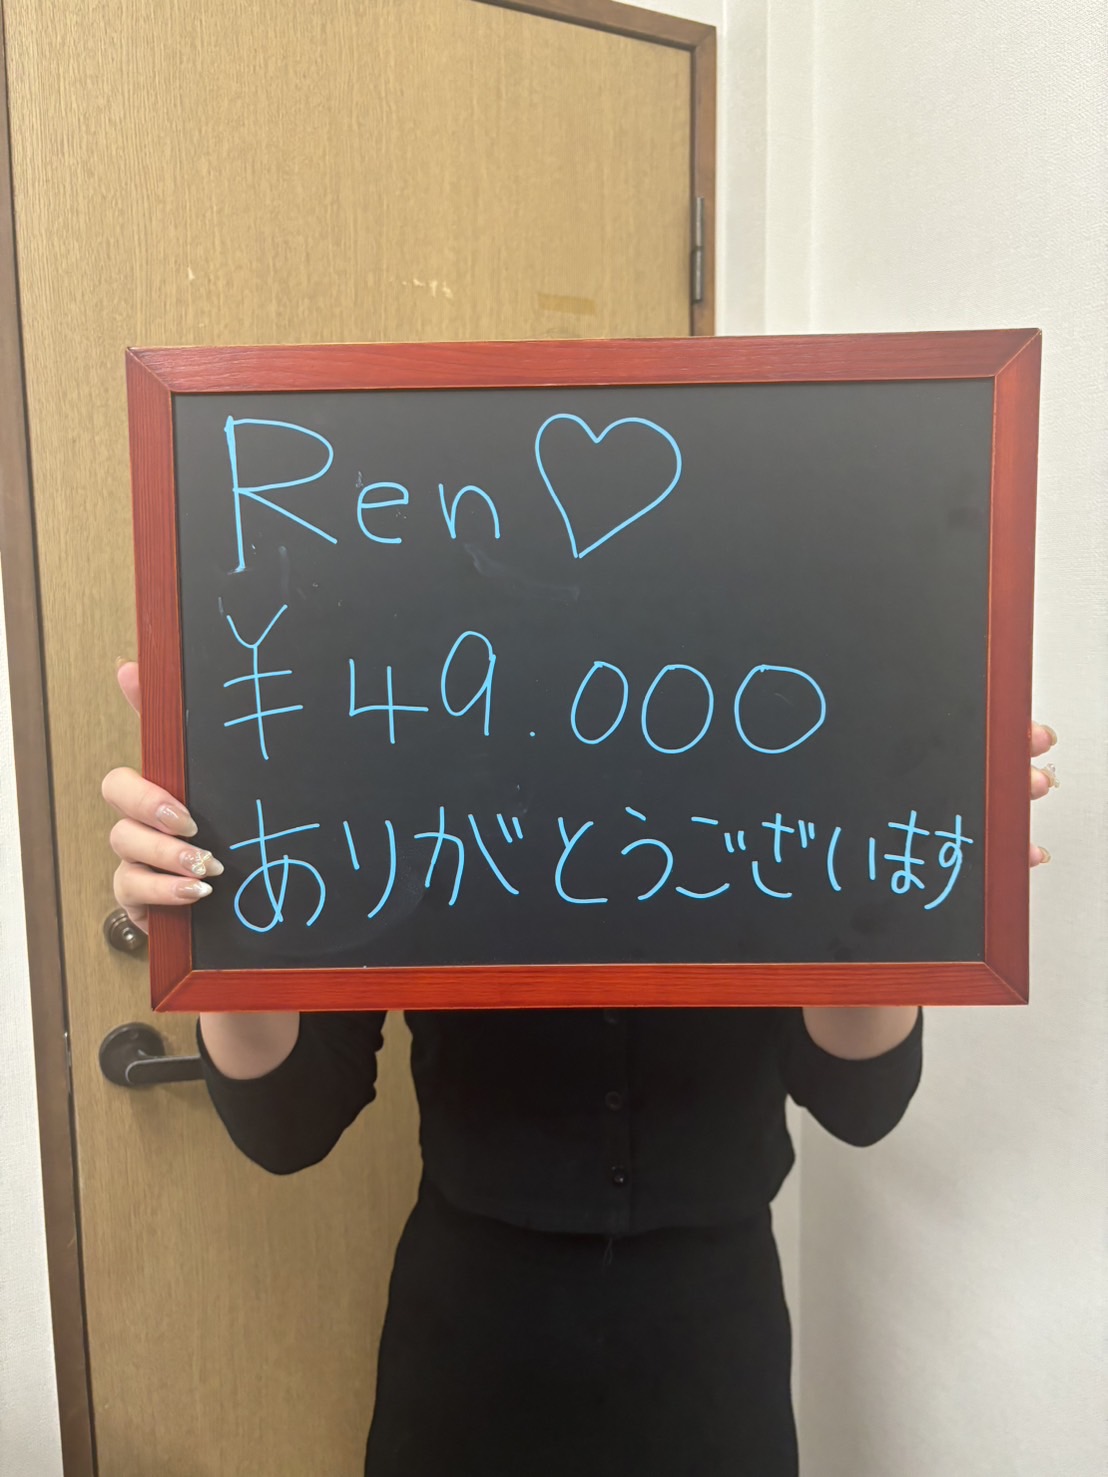 Ren♡
¥49.000
ありがとうございます